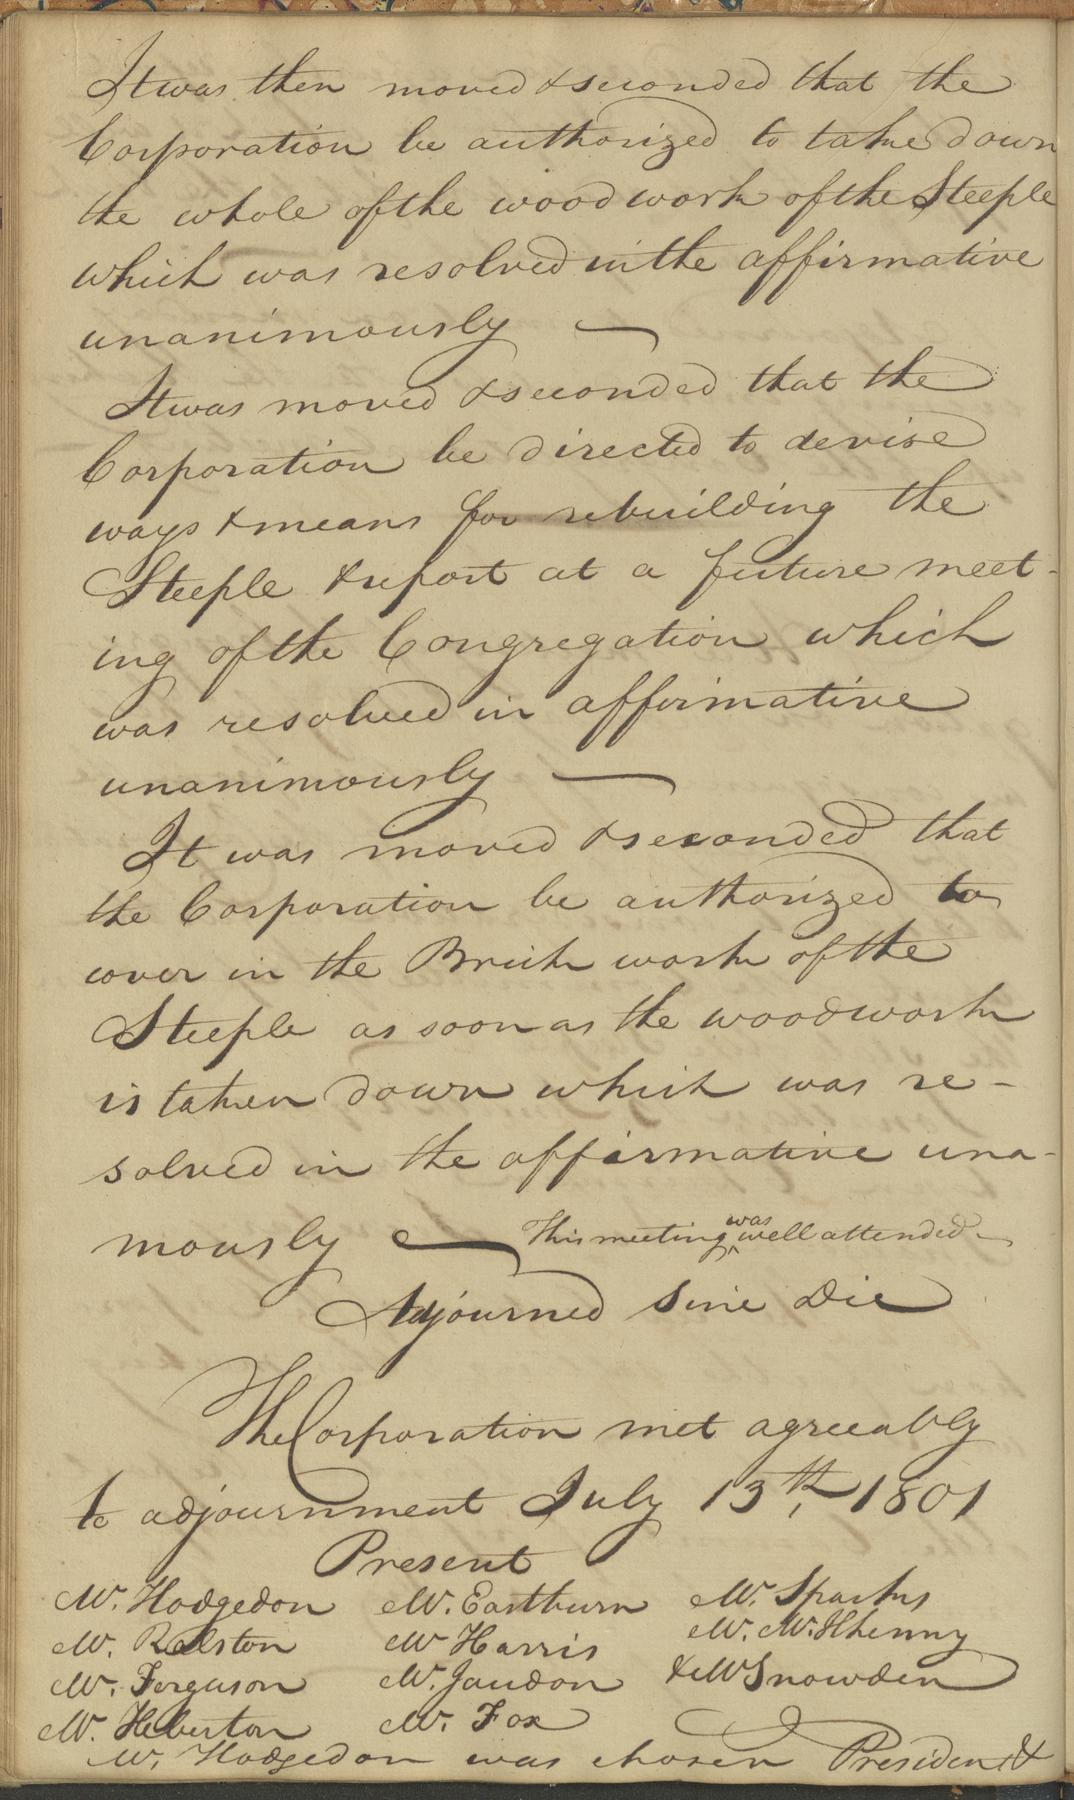 It was then moved & seconded that the
Corporation be authorized to take down
the whole of the wood work of the Steeple
which was resolved in the affirmative
unanimously —
It was moved & seconded that the
Corporation be directed to devise
ways & means for rebuilding the
Steeple & report at a future meet-
ing of the Congregation which
was resolved in affirmative
unanimously —
It was moved & seconded that
the Corporation be authorized to
cover in the Brick work of the
Steeple as soon as the woodwork
is taken down which was re-
solved in the affirmative una-
mously — This meeting was well attended —
Adjourned Sine Die
The Corporation met agreeably
to adjournment July 13th 1801
Present
Mr. Hodgedon Mr. Eastburn Mr. Sparks
Mr. Ralston Mr Harris Mr. McIlhenny
Mr. Ferguson Mr. Jaudon & Mr Snowden
Mr. Heberton Mr. Fox
Mr. Hodgedon was chosen President &